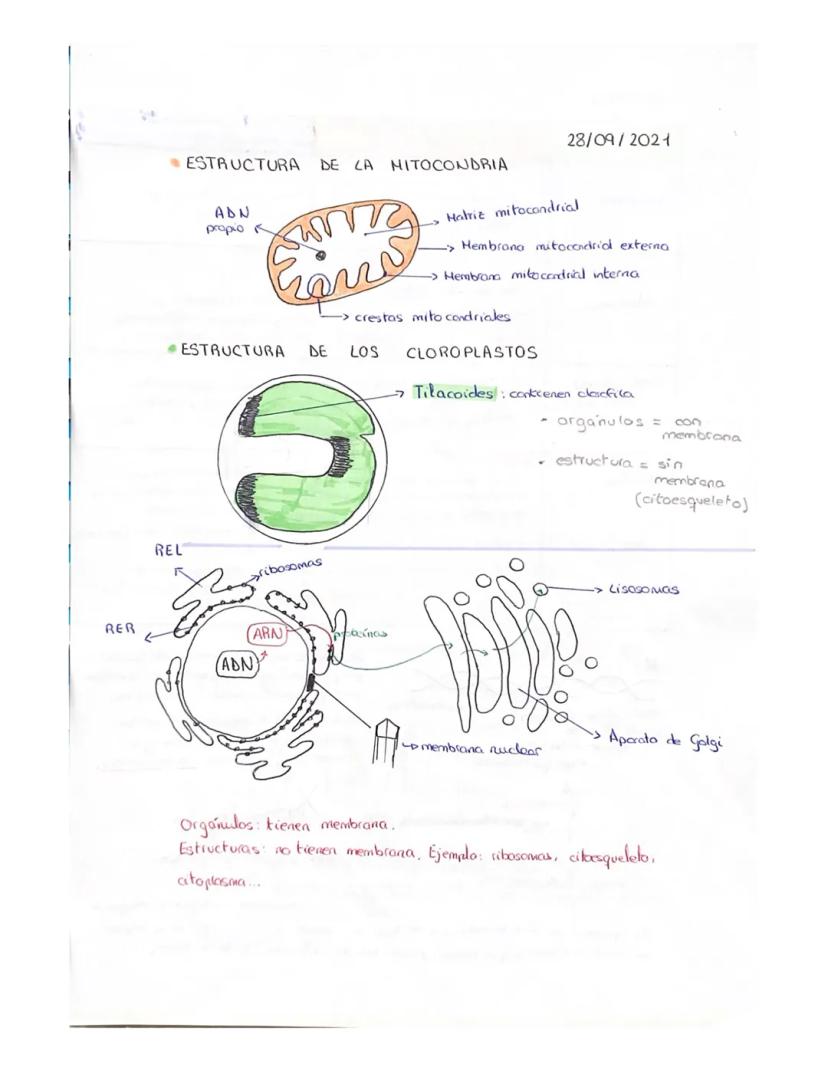 28/09/2021
ESTRUCTURA DE LA MITOCONDRIA
ADN
propio
Matriz mitocondrial
Membrana mitocondrial externa
Membrana mitocondrial interna
crestas mitocondriales
ESTRUCTURA DE LOS CLOROPLASTOS
Tilacoides: contienen clorofila
- orgánulos = con
membrana
- estructura = sin
membrana
(citoesqueleto)
REL
ribosomas
RER
ARN
ADN
proteínas
Lisosomas
membrana nuclear
Aparato de Golgi
Orgánulos: tienen membrana.
Estructuras: no tienen membrana. Ejemplo: ribosomas, citoesqueleto,
citoplasma...